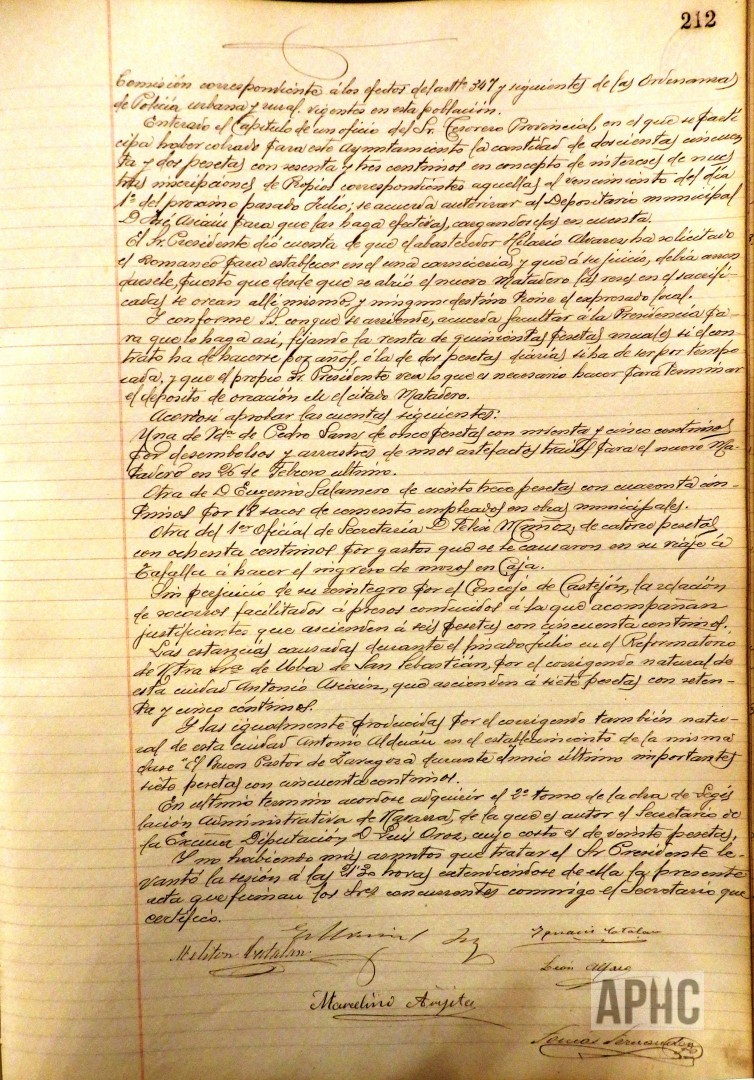 212
Comisión correspondiente á los efectos del artº 347 y siguientes de las Ordenanzas
de Policía urbana y rural vigentes en esta población.
Enterado el Capítulo de un oficio del Sr. Tesorero Provincial, en el que se parti
cipa haber cobrado para este Ayuntamiento la cantidad de doscientas cincuen
ta y dos pesetas con sesenta y tres centimos en concepto de intereses de nues
tras inscripciones de Propios correspondientes aquellas al vencimiento del dia
1º del proximo pasado Julio; se acuerda autorizar al Depositario municipal
D. José Asiain para que las haga efectivas, cargandoselas en cuenta.
El Sr. Presidente dió cuenta de que el abastecedor Hilario Alvarez ha solicitado
el Romaneo para establecer en el una carniceria, y que á su juicio, debia arren
darsele, puesto que desde que se abrió el nuevo Matadero las reses en el sacrifi
cadas se orean allí mismo, y ningun destino tiene el expresado local.
Y conforme S.S. con que se arriende, acuerda facultar á la Presidencia pa
ra que lo haga así, fijando la renta de quinientas pesetas anuales si el con
trato ha de hacerse por años, ó la de dos pesetas diarias si ha de ser por tempo
rada, y que el propio Sr. Presidente vea lo que es necesario hacer para terminar
el deposito de oreación del citado Matadero.
Acordose aprobar las cuentas siguientes:
Una de Vda. de Pedro Sanz de once pesetas con noventa y cinco centimos
por desembolsos y arrastres de unos artefactos traidos para el nuevo Ma-
tadero en 26 de Febrero ultimo.
Otra de D. Eugenio Salamero de ciento trece pesetas con cuarenta cén-
timos por 18 sacos de cemento empleados en obras municipales.
Otra del 1er Oficial de Secretaría D. Felix Muñoz, de catorce pesetas
con ochenta centimos por gastos que se le causaron en su viaje á
Tafalla á hacer el ingreso de mozos en Caja.
Sin perjuicio de su reintegro por el Concejo de Castejón, la relación
de socorros facilitados á presos conducidos á la que acompañan
justificantes que ascienden á seis pesetas con cincuenta centimos.
Las estancias causadas durante el pasado Julio en el Reformatorio
de Ntra. Sra. de Uba de San Sebastián, por el corrigendo natural de
esta ciudad Antonio Asiain, que ascienden á siete pesetas con seten-
ta y cinco céntimos.
Y las igualmente producidas por el corrigendo también natu-
ral de esta ciudad Antonio Alduán en el establecimiento de la misma
clase "El Buen Pastor de Zaragoza durante Junio último importantes
siete pesetas con cincuenta centimos.
En ultimo termino acordose adquirir el 2º tomo de la obra de Legis
lación Administrativa de Navarra, de la que es autor el Secretario de
la Excma Diputación D. Luis Oroz, cuyo coste es de veinte pesetas,
Y no habiendo más asuntos que tratar el Sr. Presidente le-
vantó la sesión á las 21'30 horas extendiendose de ella la presente
acta que firman los Sres concurrentes conmigo el Secretario que
certifico.
Ignacio Catalan
Meliton Catalan
León Alfaro
Marcelino Arijita
Tomas Fernandez
APHC